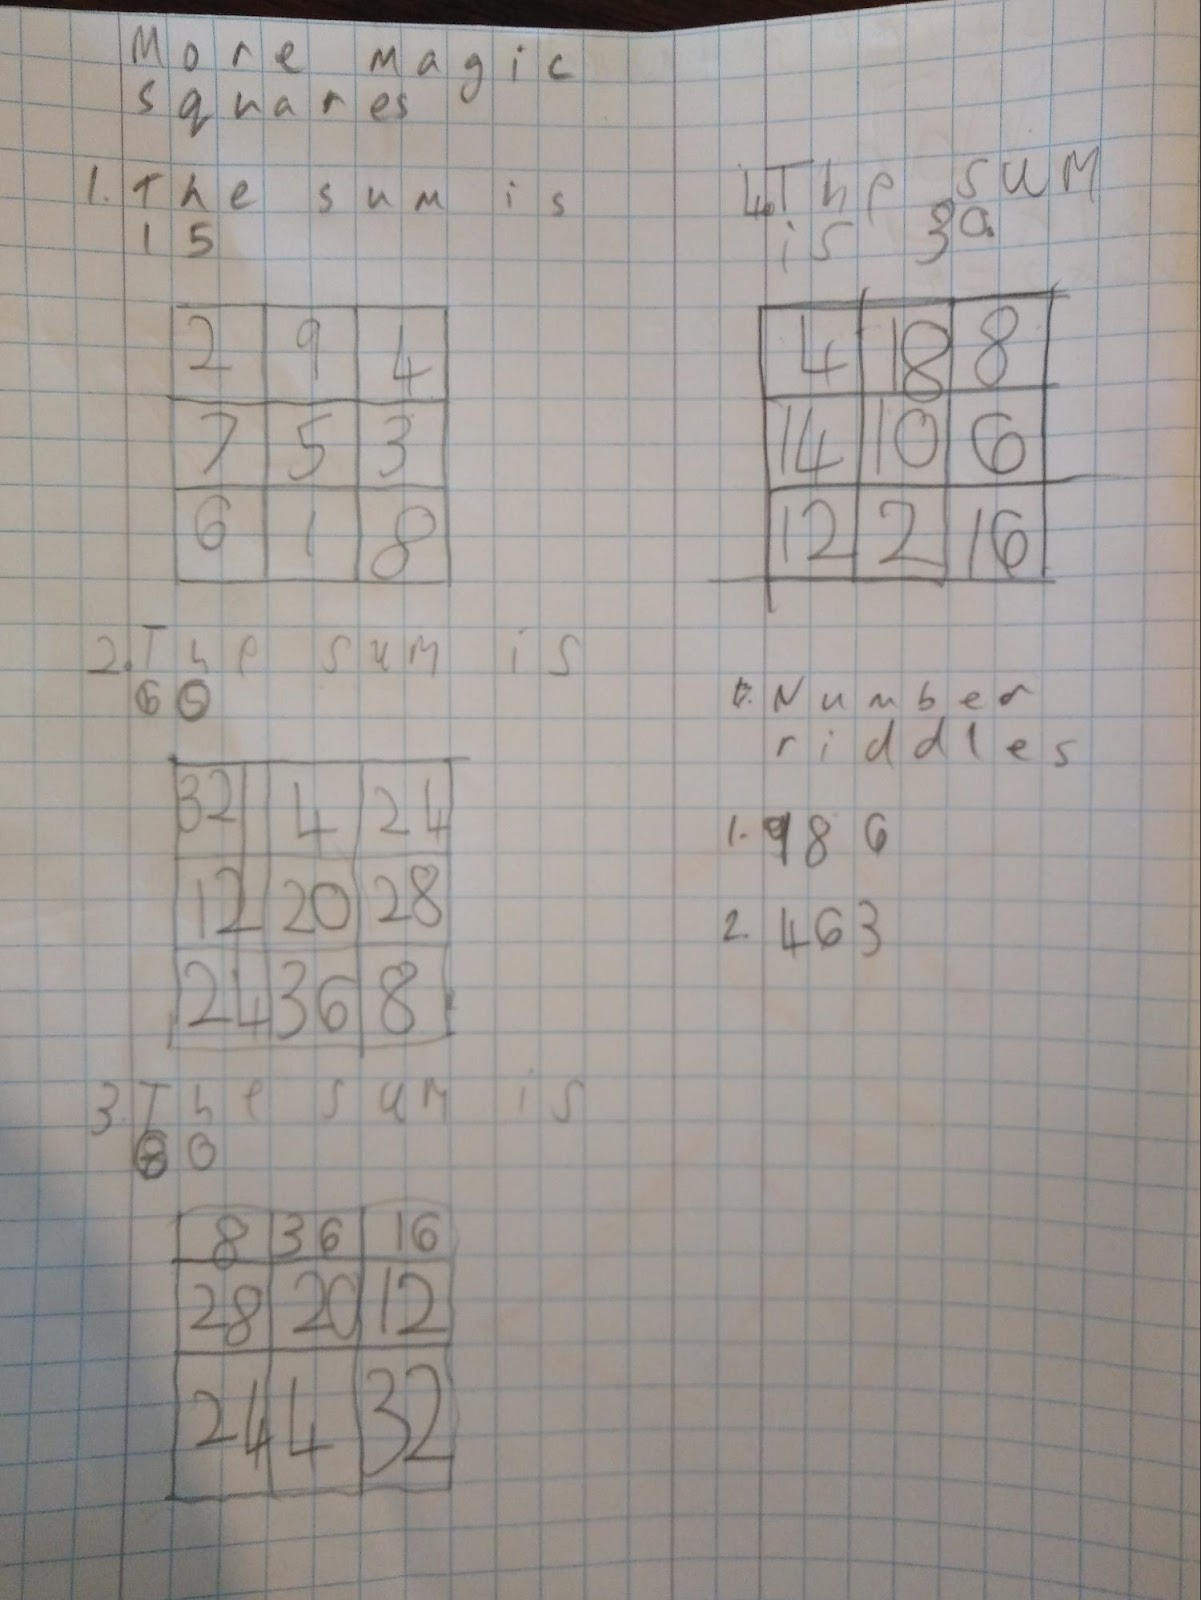 More magic
squares
1. The sum is
15
2 9 4
7 5 3
6 1 8
2. The sum is
60
32 4 24
12 20 28
24 36 8
3. The sum is
60
8 36 16
28 20 12
24 4 32
4. The sum
is 30
4 18 8
14 10 6
12 2 16
Number
riddles
1. 986
2. 463